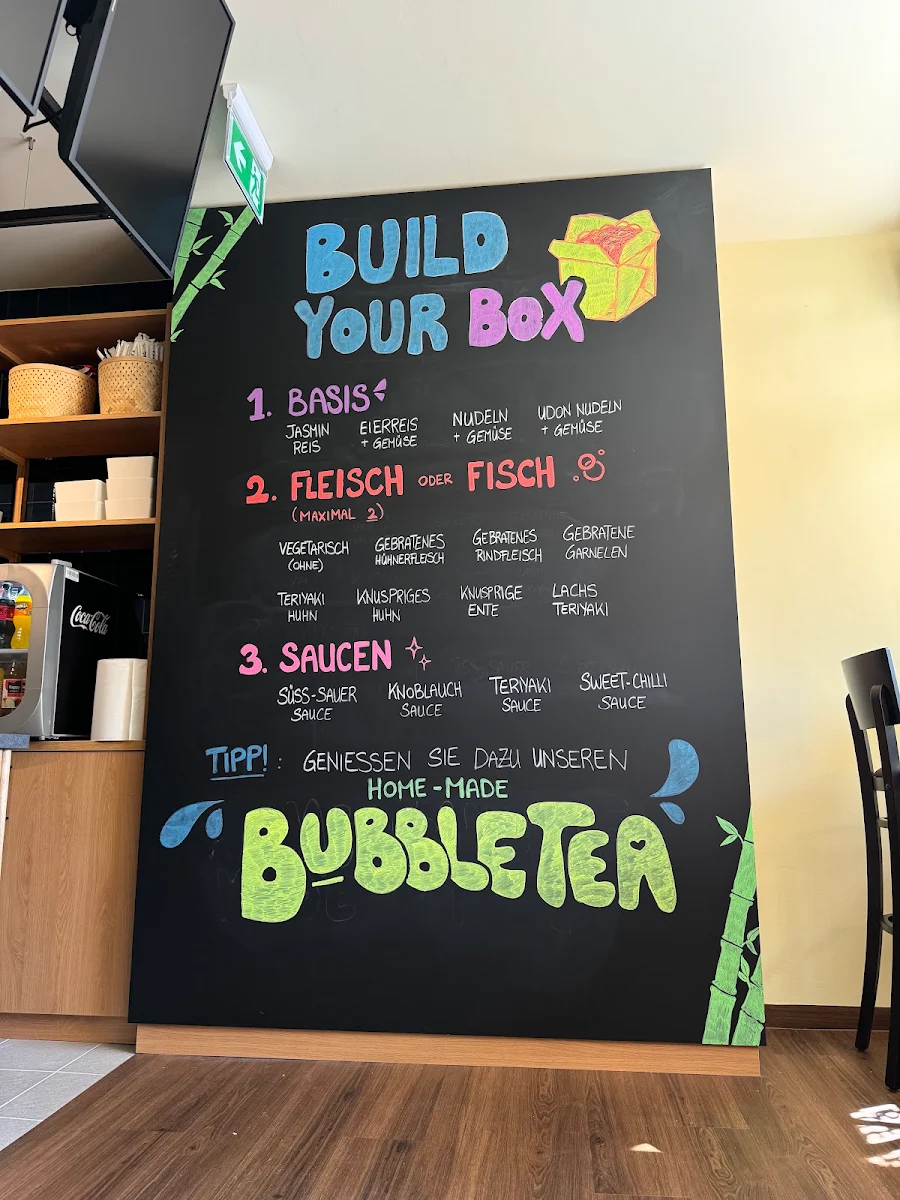 BUILD
YOUR BOX
1. BASIS
JASMIN REIS
EIERREIS + GEMÜSE
NUDELN + GEMÜSE
UDON NUDELN + GEMÜSE
2. FLEISCH ODER FISCH
(MAXIMAL 2)
VEGETARISCH (OHNE)
GEBRATENES HÜHNERFLEISCH
GEBRATENES RINDFLEISCH
GEBRATENE GARNELEN
TERIYAKI HUHN
KNUSPRIGES HUHN
KNUSPRIGE ENTE
LACHS TERIYAKI
3. SAUCEN
SÜSS-SAUER SAUCE
KNOBLAUCH SAUCE
TERIYAKI SAUCE
SWEET-CHILLI SAUCE
TIPP! : GENIESSEN SIE DAZU UNSEREN
HOME-MADE
BUBBLETEA
Coca-Cola